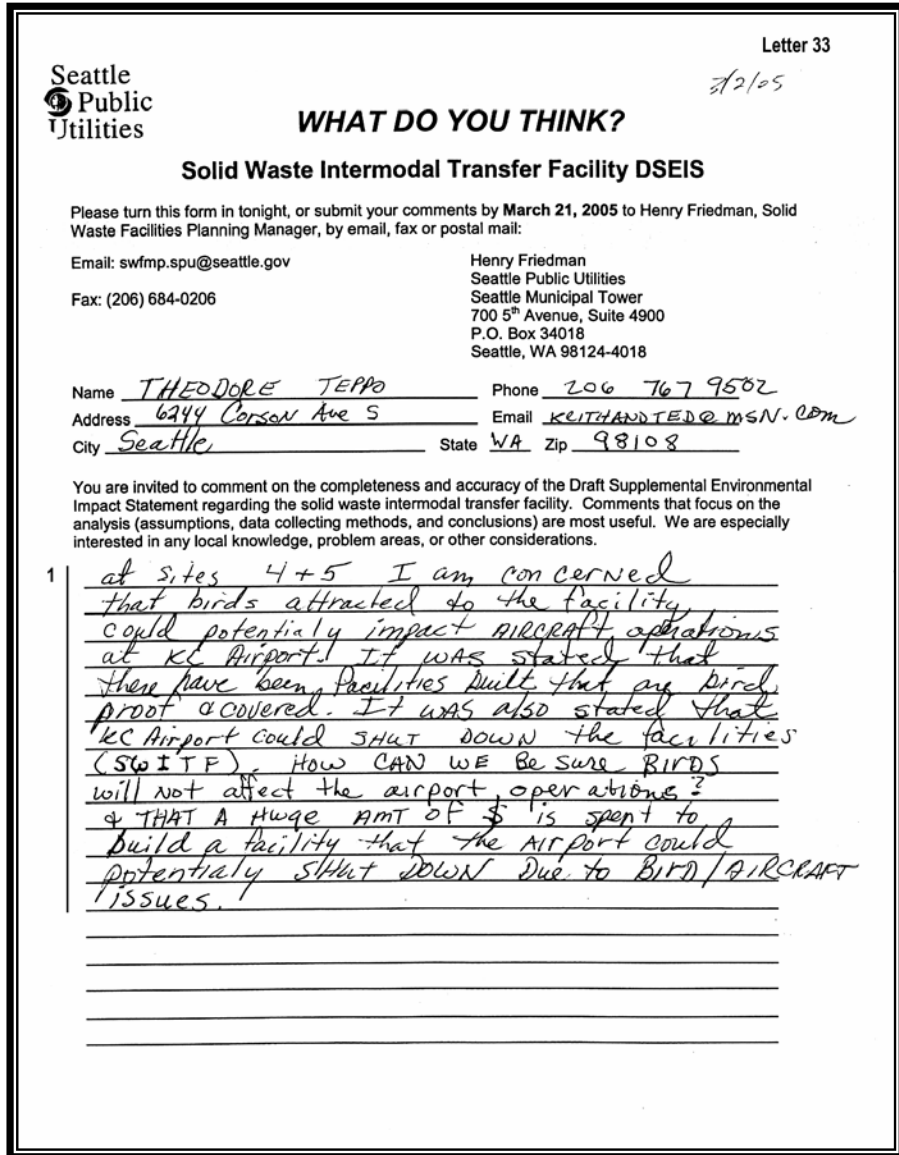 Letter 33
3/2/05
Seattle
Public
Utilities
WHAT DO YOU THINK?
Solid Waste Intermodal Transfer Facility DSEIS
Please turn this form in tonight, or submit your comments by March 21, 2005 to Henry Friedman, Solid
Waste Facilities Planning Manager, by email, fax or postal mail:
Email: swfmp.spu@seattle.gov
Fax: (206) 684-0206
Henry Friedman
Seattle Public Utilities
Seattle Municipal Tower
700 5th Avenue, Suite 4900
P.O. Box 34018
Seattle, WA 98124-4018
Name THEODORE TEPPO Phone 206 767 9502
Address 6244 Corson Ave S Email KEITHANDTED@MSN.COM
City Seattle State WA Zip 98108
You are invited to comment on the completeness and accuracy of the Draft Supplemental Environmental
Impact Statement regarding the solid waste intermodal transfer facility. Comments that focus on the
analysis (assumptions, data collecting methods, and conclusions) are most useful. We are especially
interested in any local knowledge, problem areas, or other considerations.
1 at sites 4+5 I am concerned
that birds attracted to the facility
could potentialy impact AIRCRAFT operations
at KC Airport. It WAS stated that
there have been facilities built that are bird
proof & covered. It WAS also stated that
KC Airport could SHUT DOWN the facilities
(SWITF). HOW CAN WE Be sure BIRDS
will not affect the airport operations?
& THAT A Huge AMT OF $ is spent to
build a facility that the AIRport could
potentialy SHUT DOWN Due to BIRD/AIRCRAFT
issues.